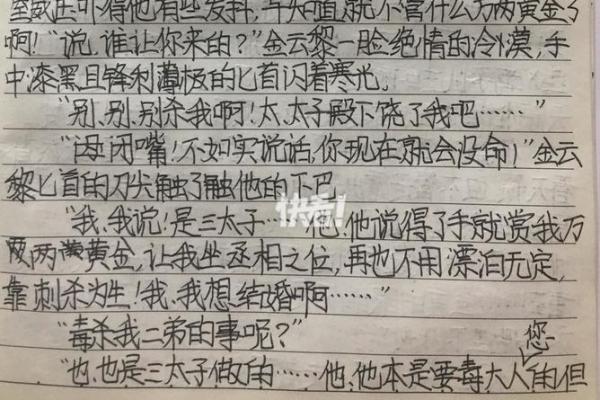 室威压吓得他有些发抖,早知道就不管什么万两黄金了
啊!“说,谁让你来的?”金云黎一脸绝情的冷漠,手
中漆黑且锋利薄极的匕首闪着寒光。
“别、别、别杀我啊!太、太子殿下饶了我吧……”
“闭嘴!不如实说话,你现在就会没命!”金云
黎匕首的刀尖触了触他的下巴
“我、我说!是三太子……他、他说得了手就赏我万
两两黄金,让我坐丞相之位,再也不用漂泊无定,
靠刺杀为生!我、我想结婚啊……”
“毒杀我二弟的事呢?”
您
“也、也是三太子做的……他、他本是要毒大人的但
快看!